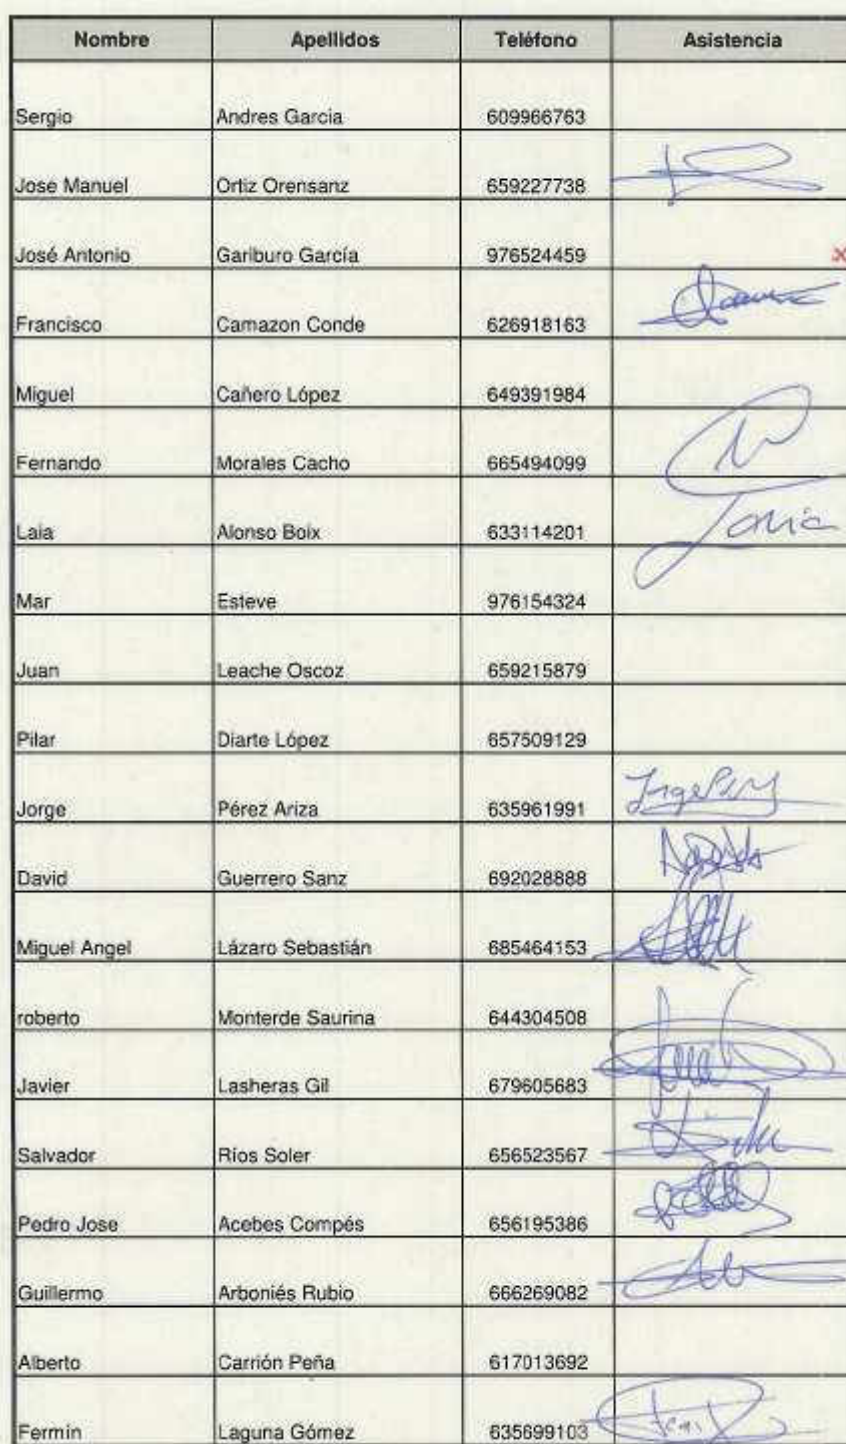 Nombre Apellidos Teléfono Asistencia
Sergio Andres Garcia 609966763
Jose Manuel Ortiz Orensanz 659227738
José Antonio Gariburo García 976524459 x
Francisco Camazon Conde 626918163
Miguel Cañero López 649391984
Fernando Morales Cacho 665494099
Laia Alonso Boix 633114201
Mar Esteve 976154324
Juan Leache Oscoz 659215879
Pilar Diarte López 657509129
Jorge Pérez Ariza 635961991
David Guerrero Sanz 692028888
Miguel Angel Lázaro Sebastián 685464153
roberto Monterde Saurina 644304508
Javier Lasheras Gil 679605683
Salvador Ríos Soler 656523567
Pedro Jose Acebes Compés 656195386
Guillermo Arboniés Rubio 666269082
Alberto Carrión Peña 617013692
Fermín Laguna Gómez 635699103